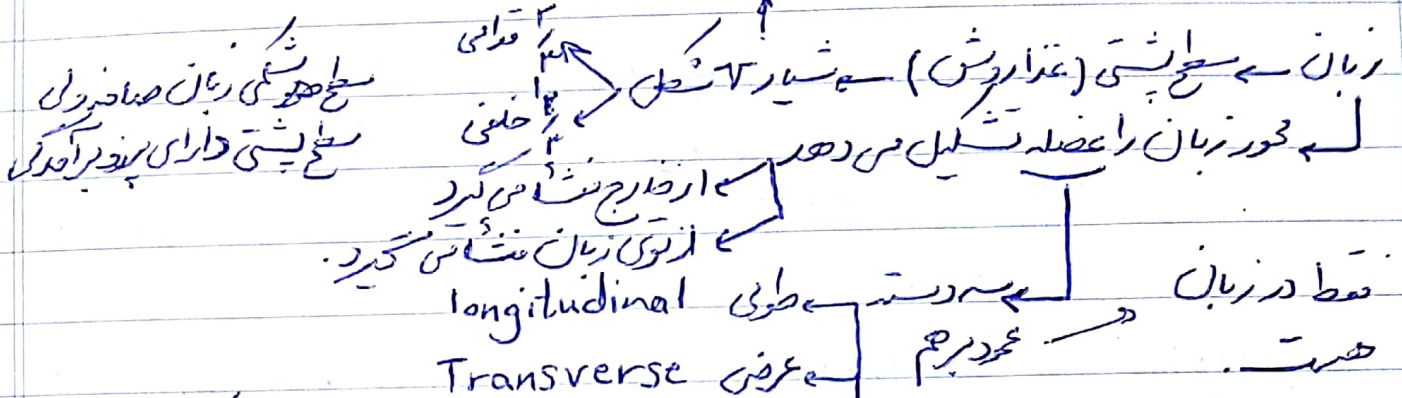 زبان ← سطح پشتی (غذا روش) ← شیار V شکل
۲/۳ قدامی
۱/۳ خلفی
سطح شکمی زبان صاف ولی
سطح پشتی دارای پرز و برآمدگی
محور زبان را عضله تشکیل می دهد
← از خارج منشأ می گیرد
← از توی زبان منشأ می گیرد.
← سه دسته ← طولی longitudinal
← عرضی Transverse
عمود بر هم
فقط در زبان
هست.